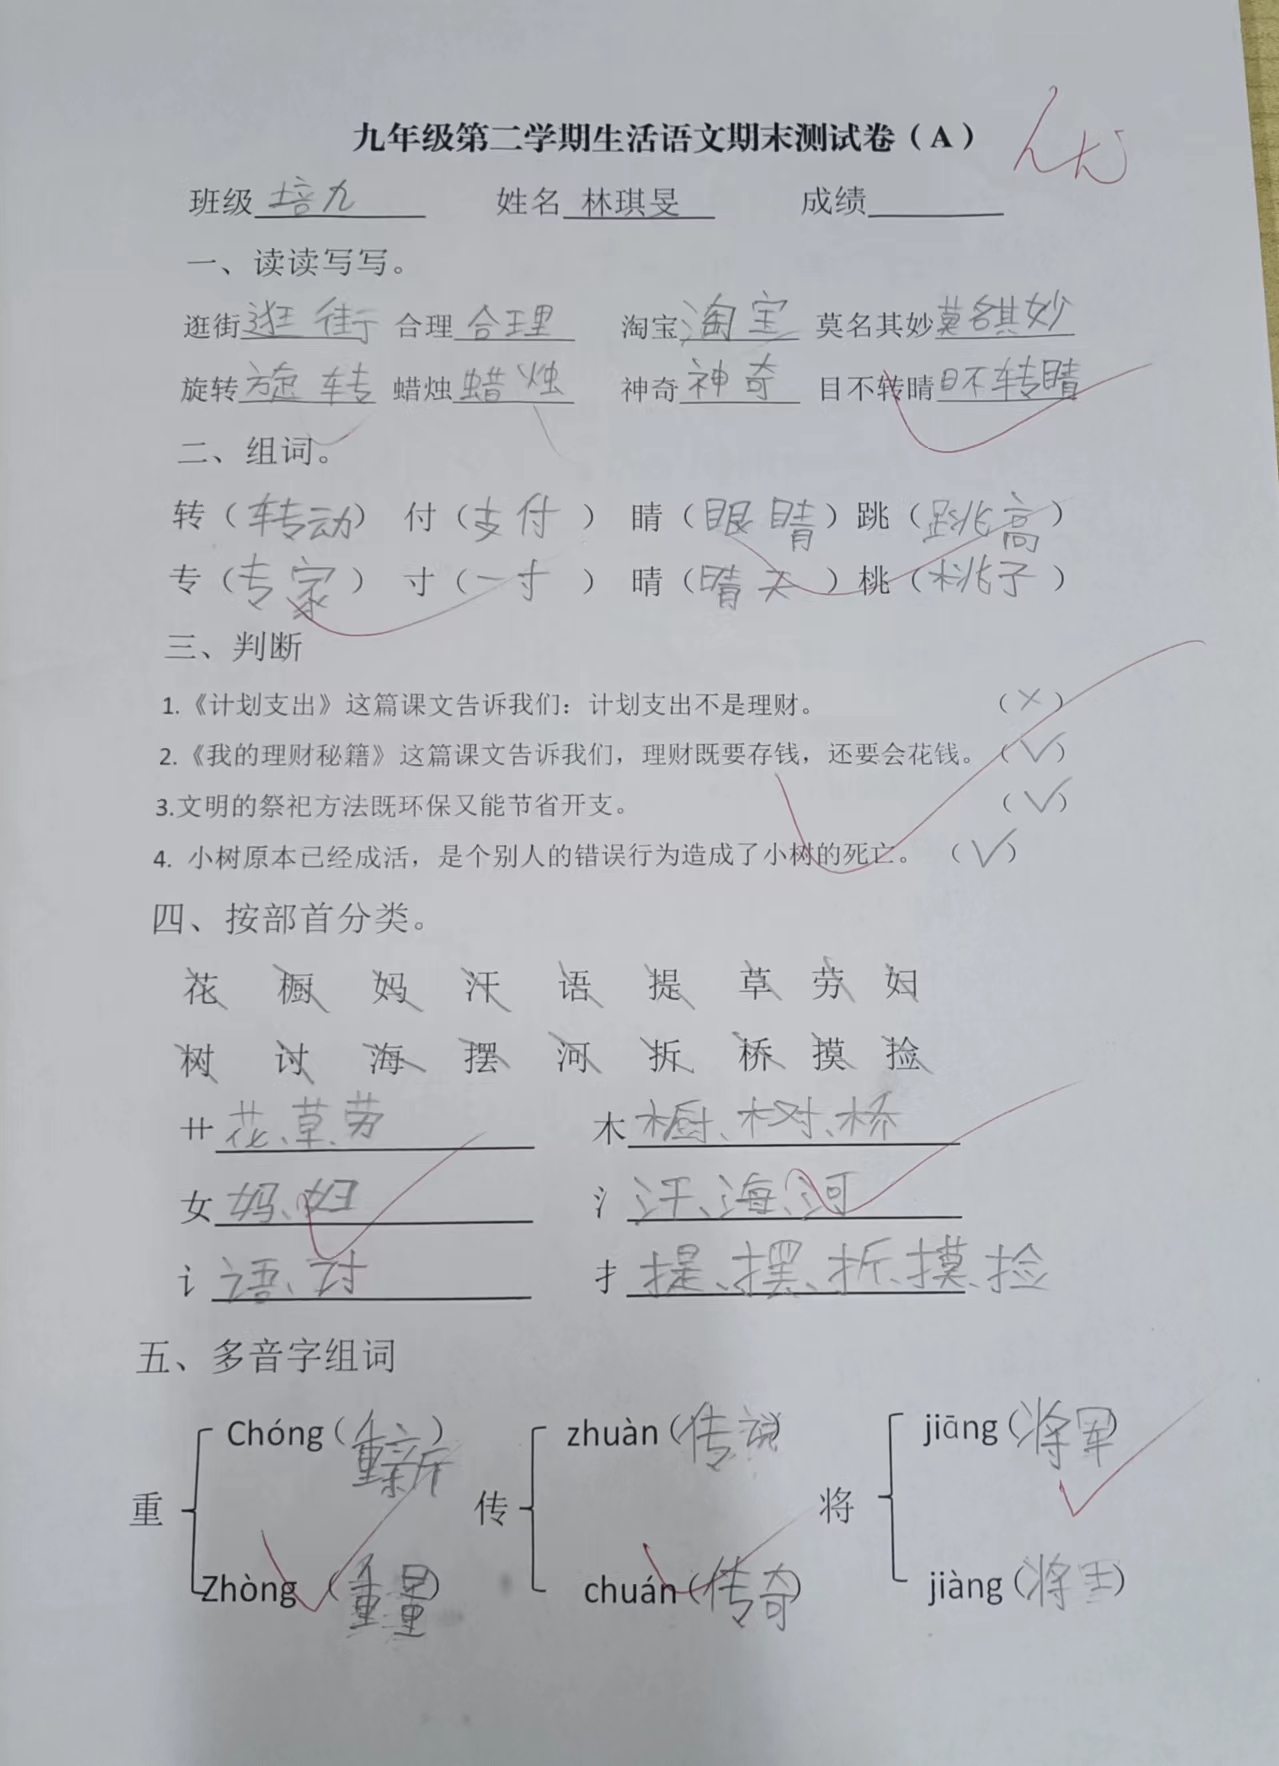 九年级第二学期生活语文期末测试卷（A）
班级 培九 姓名 林琪旻 成绩
一、读读写写。
逛街 逛街 合理 合理 淘宝 淘宝 莫名其妙 莫名其妙
旋转 旋转 蜡烛 蜡烛 神奇 神奇 目不转睛 目不转睛
二、组词。
转（转动） 付（支付） 睛（眼睛） 跳（跳高）
专（专家） 寸（一寸） 晴（晴天） 桃（桃子）
三、判断
1.《计划支出》这篇课文告诉我们：计划支出不是理财。 （×）
2.《我的理财秘籍》这篇课文告诉我们，理财既要存钱，还要会花钱。（√）
3.文明的祭祀方法既环保又能节省开支。 （√）
4. 小树原本已经成活，是个别人的错误行为造成了小树的死亡。 （√）
四、按部首分类。
花 橱 妈 汗 语 提 草 劳 妇
树 讨 海 摆 河 折 桥 摸 捡
艹 花、草、劳 木 橱、树、桥
女 妈、妇 氵 汗、海、河
讠 语、讨 扌 提、摆、折、摸、捡
五、多音字组词
Chóng（重新） zhuàn（传说） jiāng（将军）
重 传 将
Zhòng（重量） chuán（传奇） jiàng（将士）